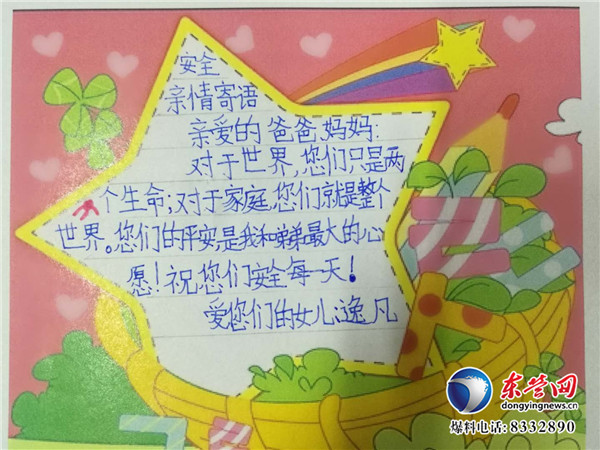 安全
亲情寄语
亲爱的爸爸妈妈:
对于世界,您们只是两
个生命;对于家庭,您们就是整个
世界。您们的平安是我和弟弟最大的心
愿!祝您们安全每一天!
爱您们的女儿:逸凡
东营网
dongyingnews.cn
爆料电话:8332890